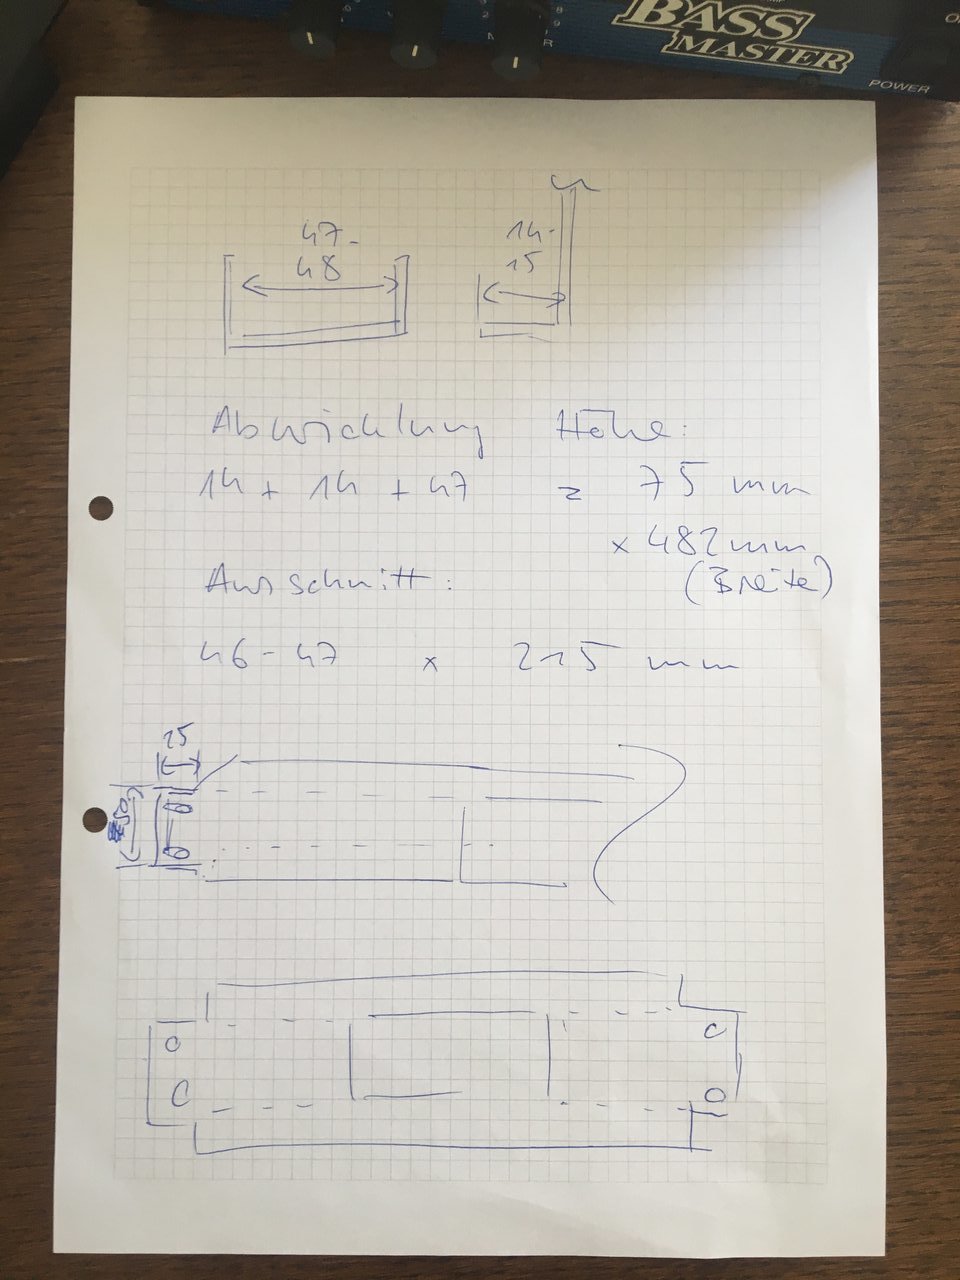 BASS
MASTER
POWER
47-
48
14-
15
Abwicklung Höhe:
14 + 14 + 47 = 75 mm
x 482 mm
(Breite)
Ausschnitt:
46-47 x 215 mm